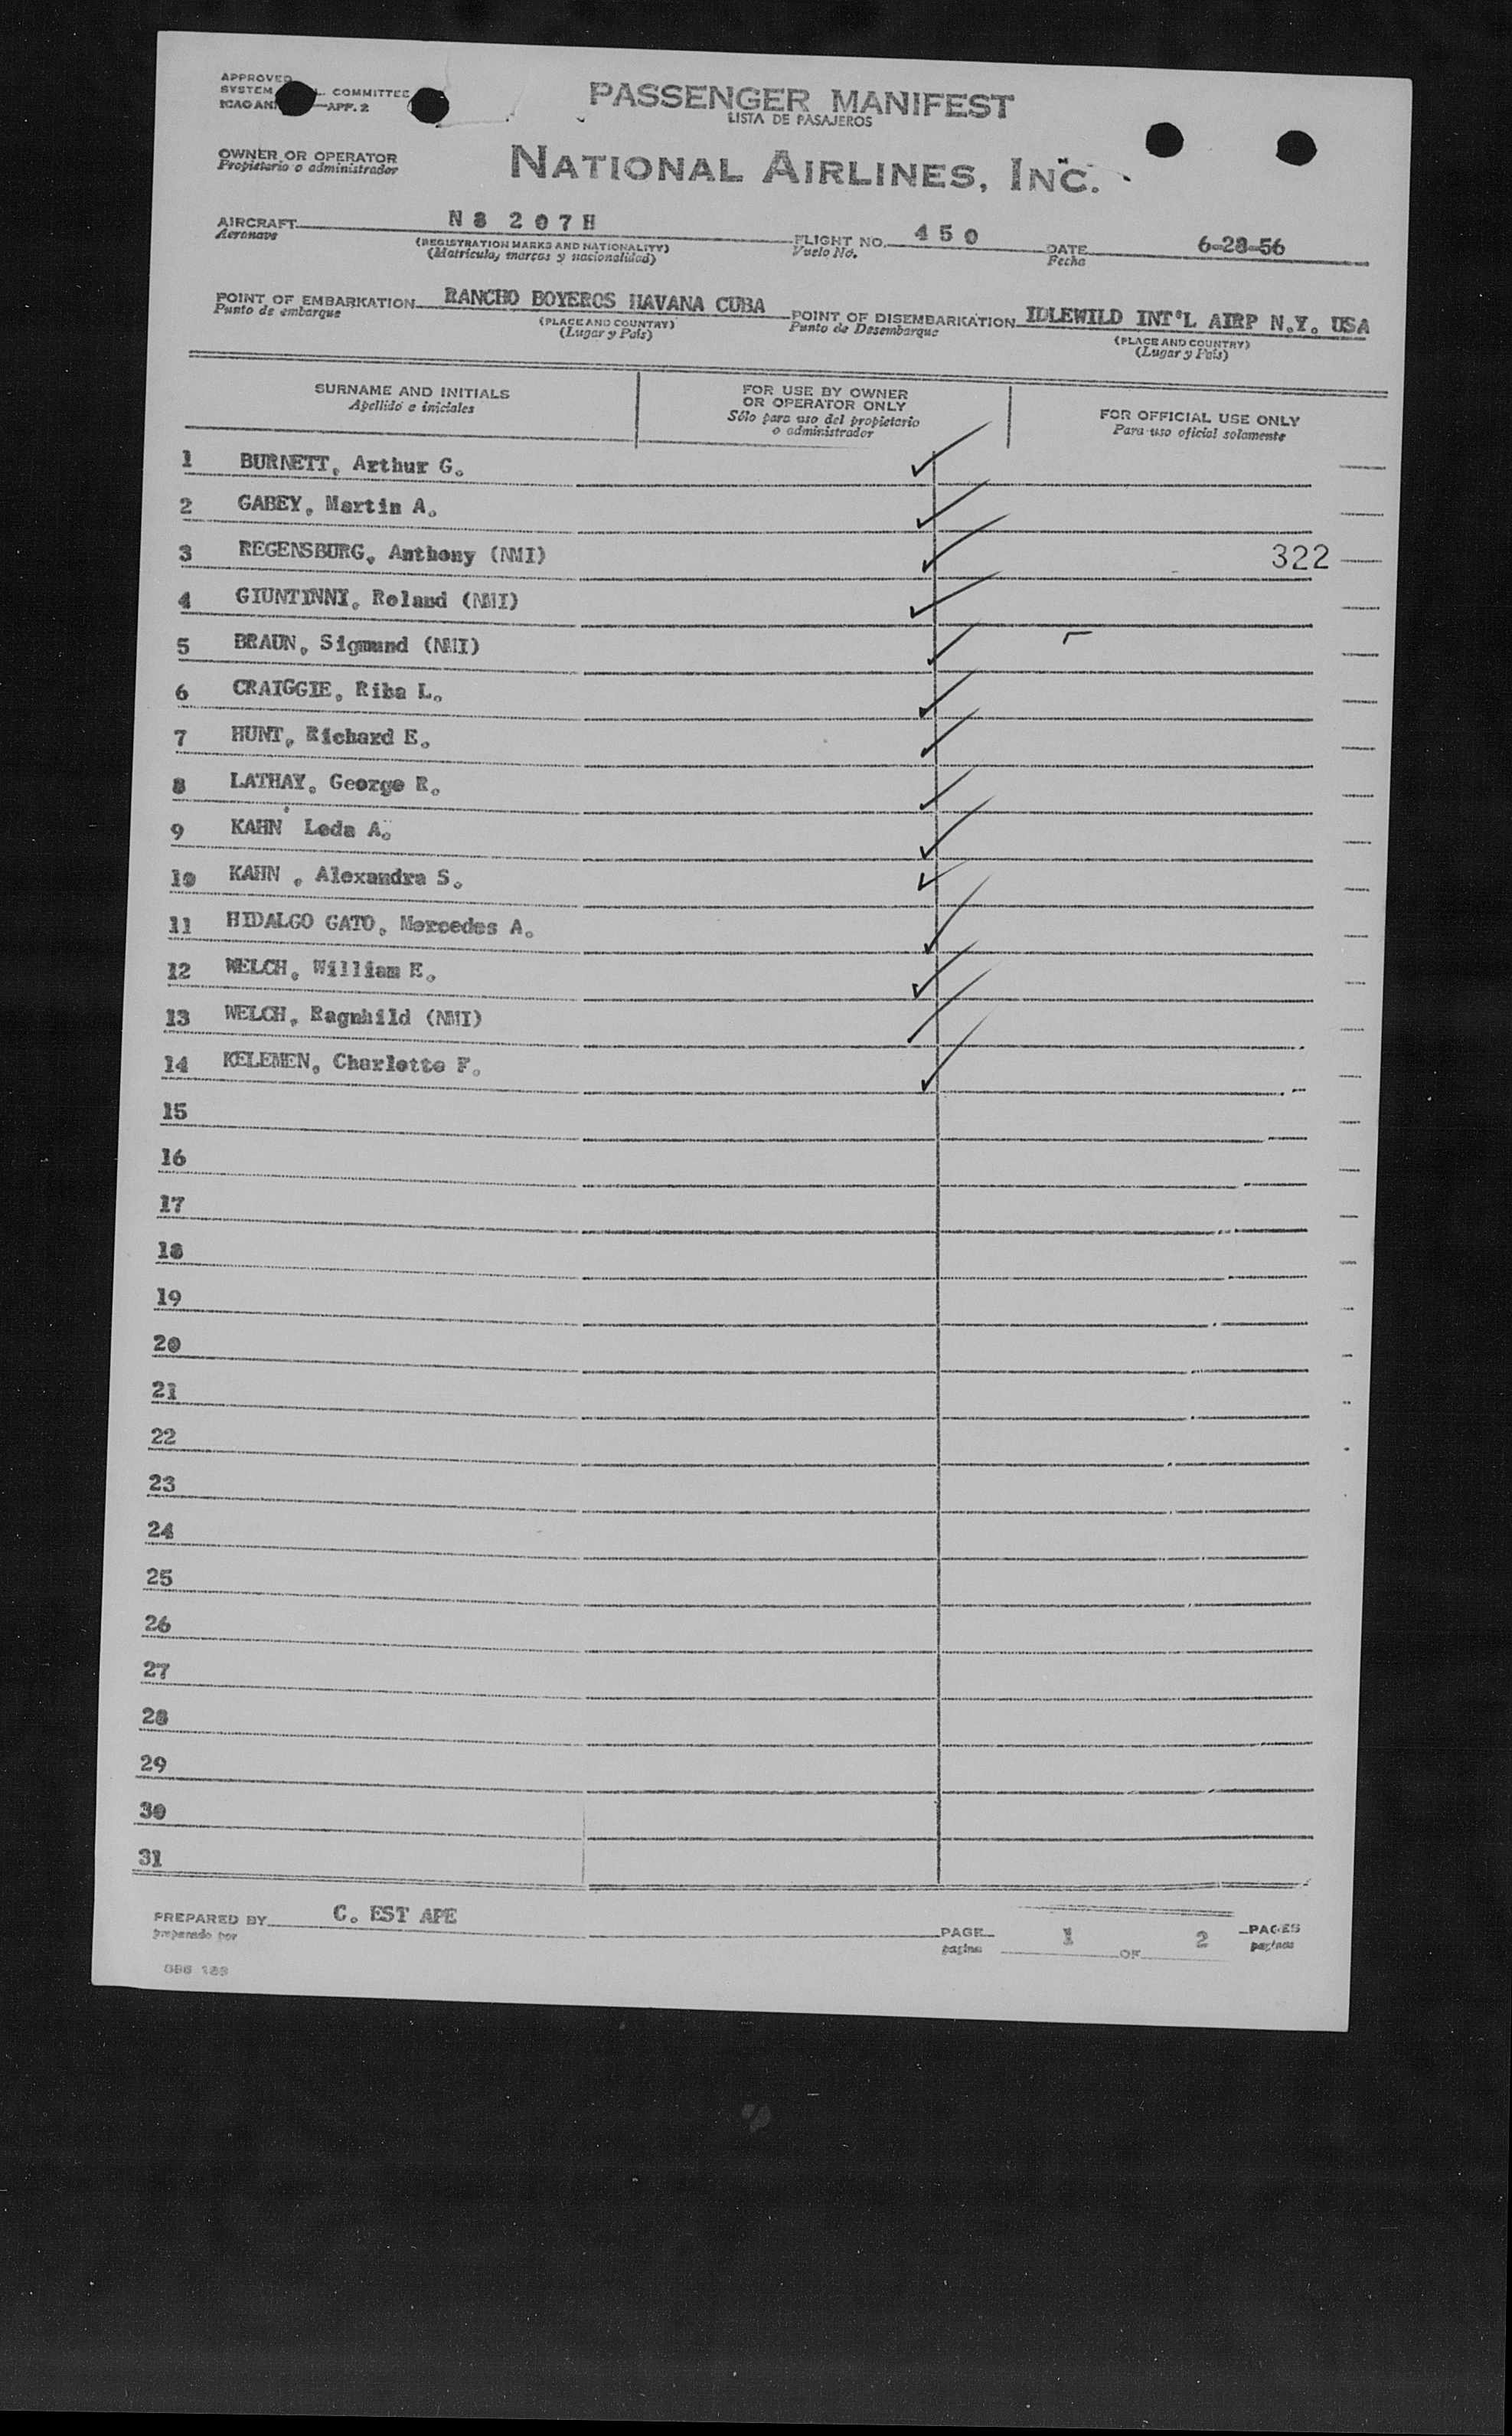 APPROVED
SYSTEM COMMITTEE
ICAO AN —APP. 2
PASSENGER MANIFEST
LISTA DE PASAJEROS
OWNER OR OPERATOR
Propietario o administrador
NATIONAL AIRLINES, INC.
AIRCRAFT N 8 2 0 7 H FLIGHT NO. 4 5 0 DATE 6-28-56
Aeronave (REGISTRATION MARKS AND NATIONALITY) Vuelo No. Fecha
(Matricula, marcas y nacionalidad)
POINT OF EMBARKATION RANCHO BOYEROS HAVANA CUBA POINT OF DISEMBARKATION IDLEWILD INT'L AIRP N.Y. USA
Punto de embarque (PLACE AND COUNTRY) Punto de Desembarque (PLACE AND COUNTRY)
(Lugar y País) (Lugar y País)
SURNAME AND INITIALS FOR USE BY OWNER
Apellido e iniciales OR OPERATOR ONLY FOR OFFICIAL USE ONLY
Sólo para uso del propietario Para uso oficial solamente
o administrador
1 BURNETT, Arthur G.
2 GABEY, Martin A.
3 REGENSBURG, Anthony (NMI) 322
4 GIUNTINNI, Roland (NMI)
5 BRAUN, Sigmund (NMI)
6 CRAIGGIE, Riba L.
7 HUNT, Richard E.
8 LATHAY, George R.
9 KAHN Leda A.
10 KAHN , Alexandra S.
11 HIDALGO GATO, Mercedes A.
12 WELCH, William E.
13 WELCH, Ragnhild (NMI)
14 KELEMEN, Charlotte F.
15
16
17
18
19
20
21
22
23
24
25
26
27
28
29
30
31
PREPARED BY C. EST APE PAGE 1 OF 2 PAGES
preparado por pagina paginas